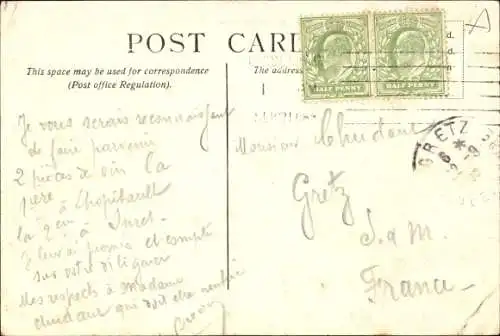 POST CARD
This space may be used for correspondence
(Post office Regulation).
The address
HALF PENNY
HALF PENNY
Je vous serais reconnaissant
de faire parvenir
2 pièces de vin La
1ère à Lhopitault
la 2em à
Je leur ai promis et compte
sur votre diligence
Mes respects à madame
Chudant qui doit être rentrée
Monsieur Chudant
Gretz
S. et M.
France
GRETZ